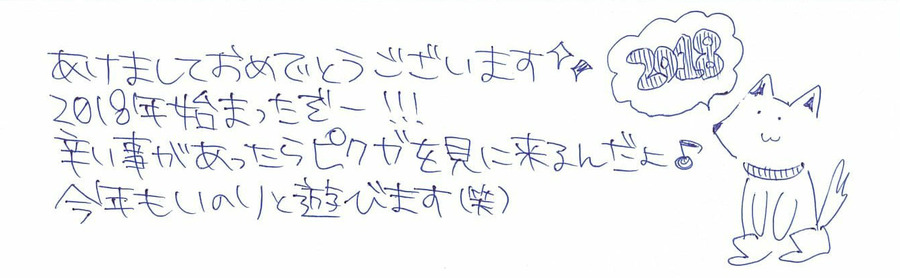 あけましておめでとうございます☆
2018年始まったぞー!!!
辛い事があったらピクガを見に来るんだよ♪
今年もいのりと遊びます(笑)
2018